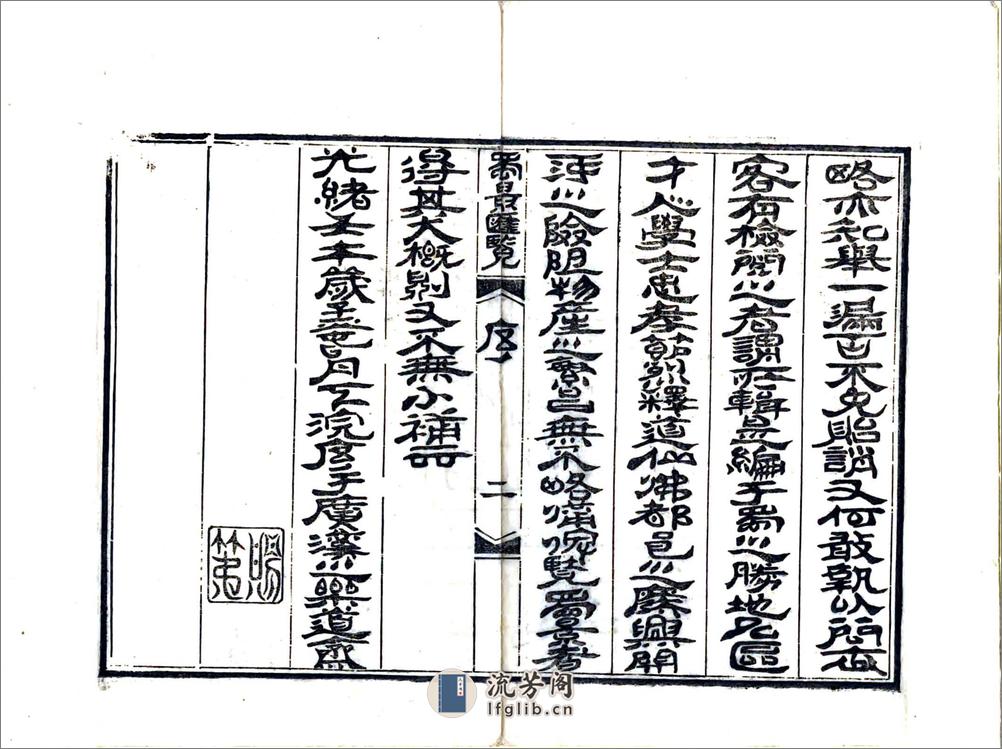 略亦知舉一漏百不免貽誚又何敢執以問世
客有檢閱之者謂茲輯是編于蜀之勝地名區
才人學士忠孝節烈釋道仙佛都邑之廢興關
河之險阻物產之繁昌無不略備俾覽蜀景者
蜀景匯覽
序
二
得其大概則又不無小補云
光緒壬午歲 月下浣序于廣漢之樂道齋
賜第
流芳阁
lfglib.cn